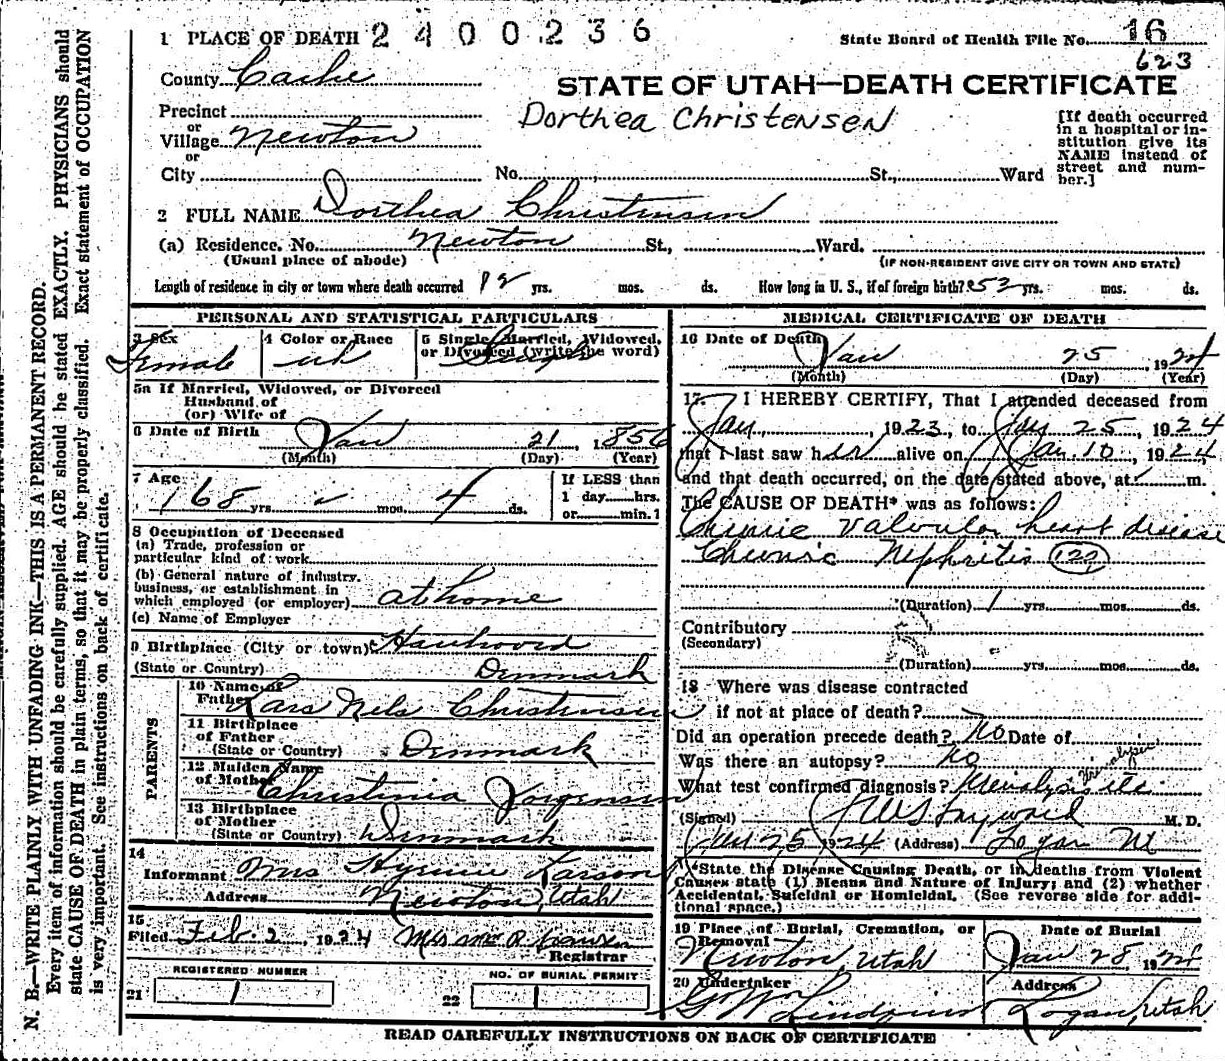 1 PLACE OF DEATH 2400236
State Board of Health File No. 16
623
County Cache
STATE OF UTAH—DEATH CERTIFICATE
Precinct
or
Village Newton
or
City No. St., Ward
Dorthea Christensen
[If death occurred
in a hospital or in-
stitution give its
NAME instead of
street and num-
ber.]
2 FULL NAME Dorthea Christensen
(a) Residence. No. Newton St., Ward.
(Usual place of abode) (IF NON-RESIDENT GIVE CITY OR TOWN AND STATE)
Length of residence in city or town where death occurred yrs. mos. ds. How long in U. S., if of foreign birth? 53 yrs. mos. ds.
PERSONAL AND STATISTICAL PARTICULARS
3 Sex
Female
4 Color or Race
wh
5 Single, Married, Widowed,
or Divorced (write the word)
Single
5a If Married, Widowed, or Divorced
Husband of
(or) Wife of
6 Date of Birth Jan 21, 1856
(Month) (Day) (Year)
7 Age
68 yrs. – mos. 4 ds.
If LESS than
1 day hrs.
or min.1
8 Occupation of Deceased
(a) Trade, profession or
particular kind of work
(b) General nature of industry,
business, or establishment in
which employed (or employer) at home
(c) Name of Employer
9 Birthplace (City or town)
(State or Country) Denmark
PARENTS
10 Name of
Father Lars Nels Christensen
11 Birthplace
of Father
(State or Country) Denmark
12 Maiden Name
of Mother Christinia Jorgensen
13 Birthplace
of Mother
(State or Country) Denmark
14
Informant Mrs Hyrum Larson
Address Newton, Utah
15
Filed Feb. 2, 1924 Mrs
Registrar
REGISTERED NUMBER
21 1
NO. OF BURIAL PERMIT
22 1
MEDICAL CERTIFICATE OF DEATH
16 Date of Death
Jan 25, 1924
(Month) (Day) (Year)
17 I HEREBY CERTIFY, That I attended deceased from
Jan, 1923, to Jan 25, 1924
that I last saw her alive on Jan. 10, 1924,
and that death occurred, on the date stated above, at m.
The CAUSE OF DEATH* was as follows:
Chronic Valvular heart disease
Chronic Nephritis (122)
(Duration) 1 yrs. mos. ds.
Contributory
(Secondary)
(Duration) yrs. mos. ds.
18 Where was disease contracted
if not at place of death?
Did an operation precede death? No Date of
Was there an autopsy? No
What test confirmed diagnosis? Urinalysis etc
Urinalysis
(Signed) Hayward M. D.
Jan 25 1924 (Address) Logan Ut
*State the Disease Causing Death, or in deaths from Violent
Causes state (1) Means and Nature of Injury; and (2) whether
Accidental, Suicidal or Homicidal. (See reverse side for addi-
tional space.)
19 Place of Burial, Cremation, or
Removal
Newton, Utah
Date of Burial
Jan 28, 1924
20 Undertaker
Geo W Lindquist
Address
Logan, Utah
READ CAREFULLY INSTRUCTIONS ON BACK OF CERTIFICATE
N. B.—WRITE PLAINLY WITH UNFADING INK—THIS IS A PERMANENT RECORD.
Every item of information should be carefully supplied. AGE should be stated EXACTLY. PHYSICIANS should
state CAUSE OF DEATH in plain terms, so that it may be properly classified. Exact statement of OCCUPATION
is very important. See instructions on back of certificate.